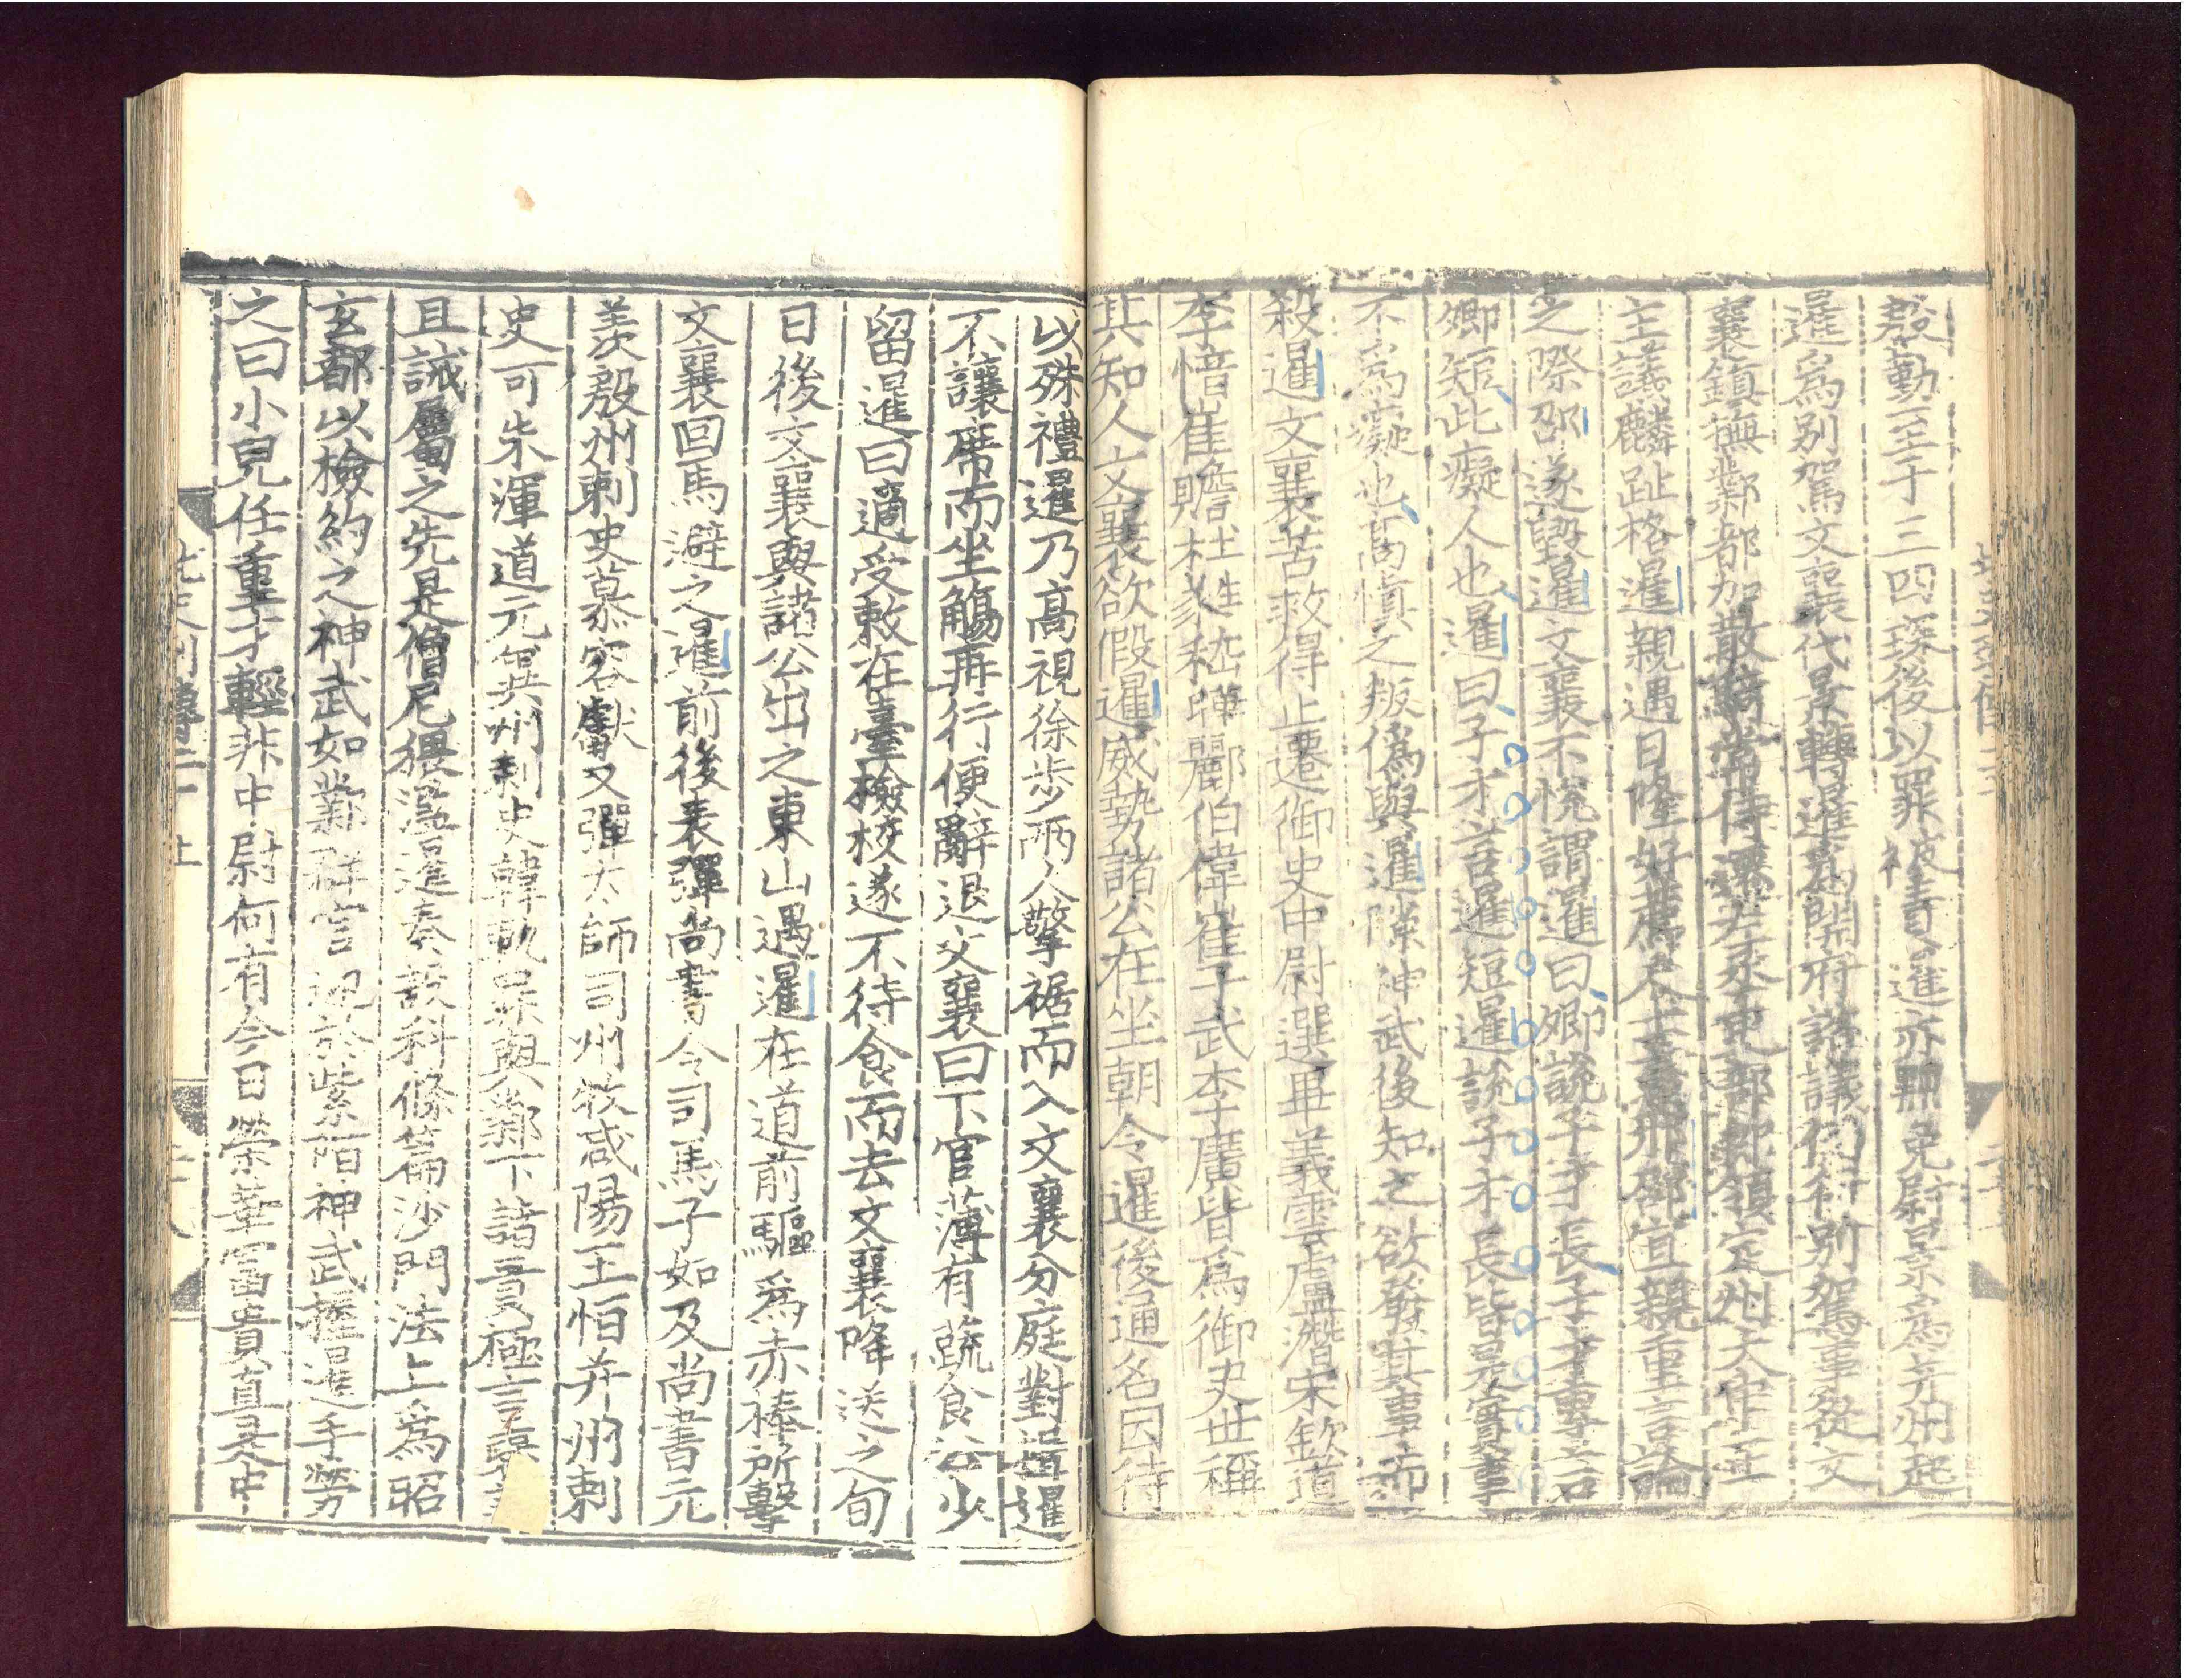 殷勤至于三四琛後以罪被責暹亦黜免尉景爲并州起
暹爲別駕文襄代景轉暹爲開府諮議仍行別駕事從文
襄鎮撫鄴都加散騎常侍遷左丞吏部郎領定州大中正
主議麟趾格暹親遇日隆好薦人士言邢邵宜親重言論
之際邵遂毀暹文襄不悅謂暹曰卿說子才長子才專言
卿短此癡人也暹曰子才言暹短暹說子才長皆是實事
不爲癡也高愼之叛僞與暹隙神武後知之欲發其事而
殺暹文襄苦救得止遷御史中尉選畢義雲盧潛宋欽道
李愔崔贍杜蕤嵇曄酈伯偉崔子武李廣皆爲御史世稱
其知人文襄欲假暹威勢諸公在坐朝令暹後通名因待
以殊禮暹乃高視徐步兩人擎裾而入文襄分庭對揖暹
不讓席而坐觴再行便辭退文襄曰下官薄有蔬食公少
留暹曰適受敕在臺檢校遂不待食而去文襄降送之旬
日後文襄與諸公出之東山遇暹在道前驅爲赤棒所擊
文襄回馬避之暹前後表彈尚書令司馬子如及尚書元
羨殷州刺史慕容獻又彈太師司州牧咸陽王怛并州刺
史可朱渾道元冀州刺史韓軌罪與鄴下諸貴極言襃
且誡屬之先是僧尼猥濫暹奏設科條篇沙門法上爲昭
玄都以檢約之神武如鄴群官迎於紫陌神武握暹手勞
之曰小兒任重才輕非中尉何有今日榮華富貴直是中